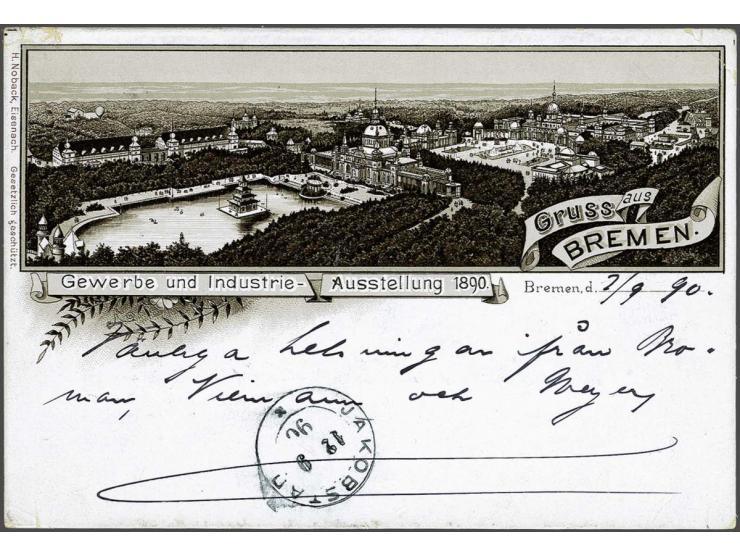 H. Noback, Eisenach. Gesetzlich geschützt.
Gruss aus
BREMEN.
Gewerbe und Industrie-Ausstellung 1890.
Bremen, d. 7/9 90.
helsningar från
och Meyer
JAKOBSTAD
12 9
90